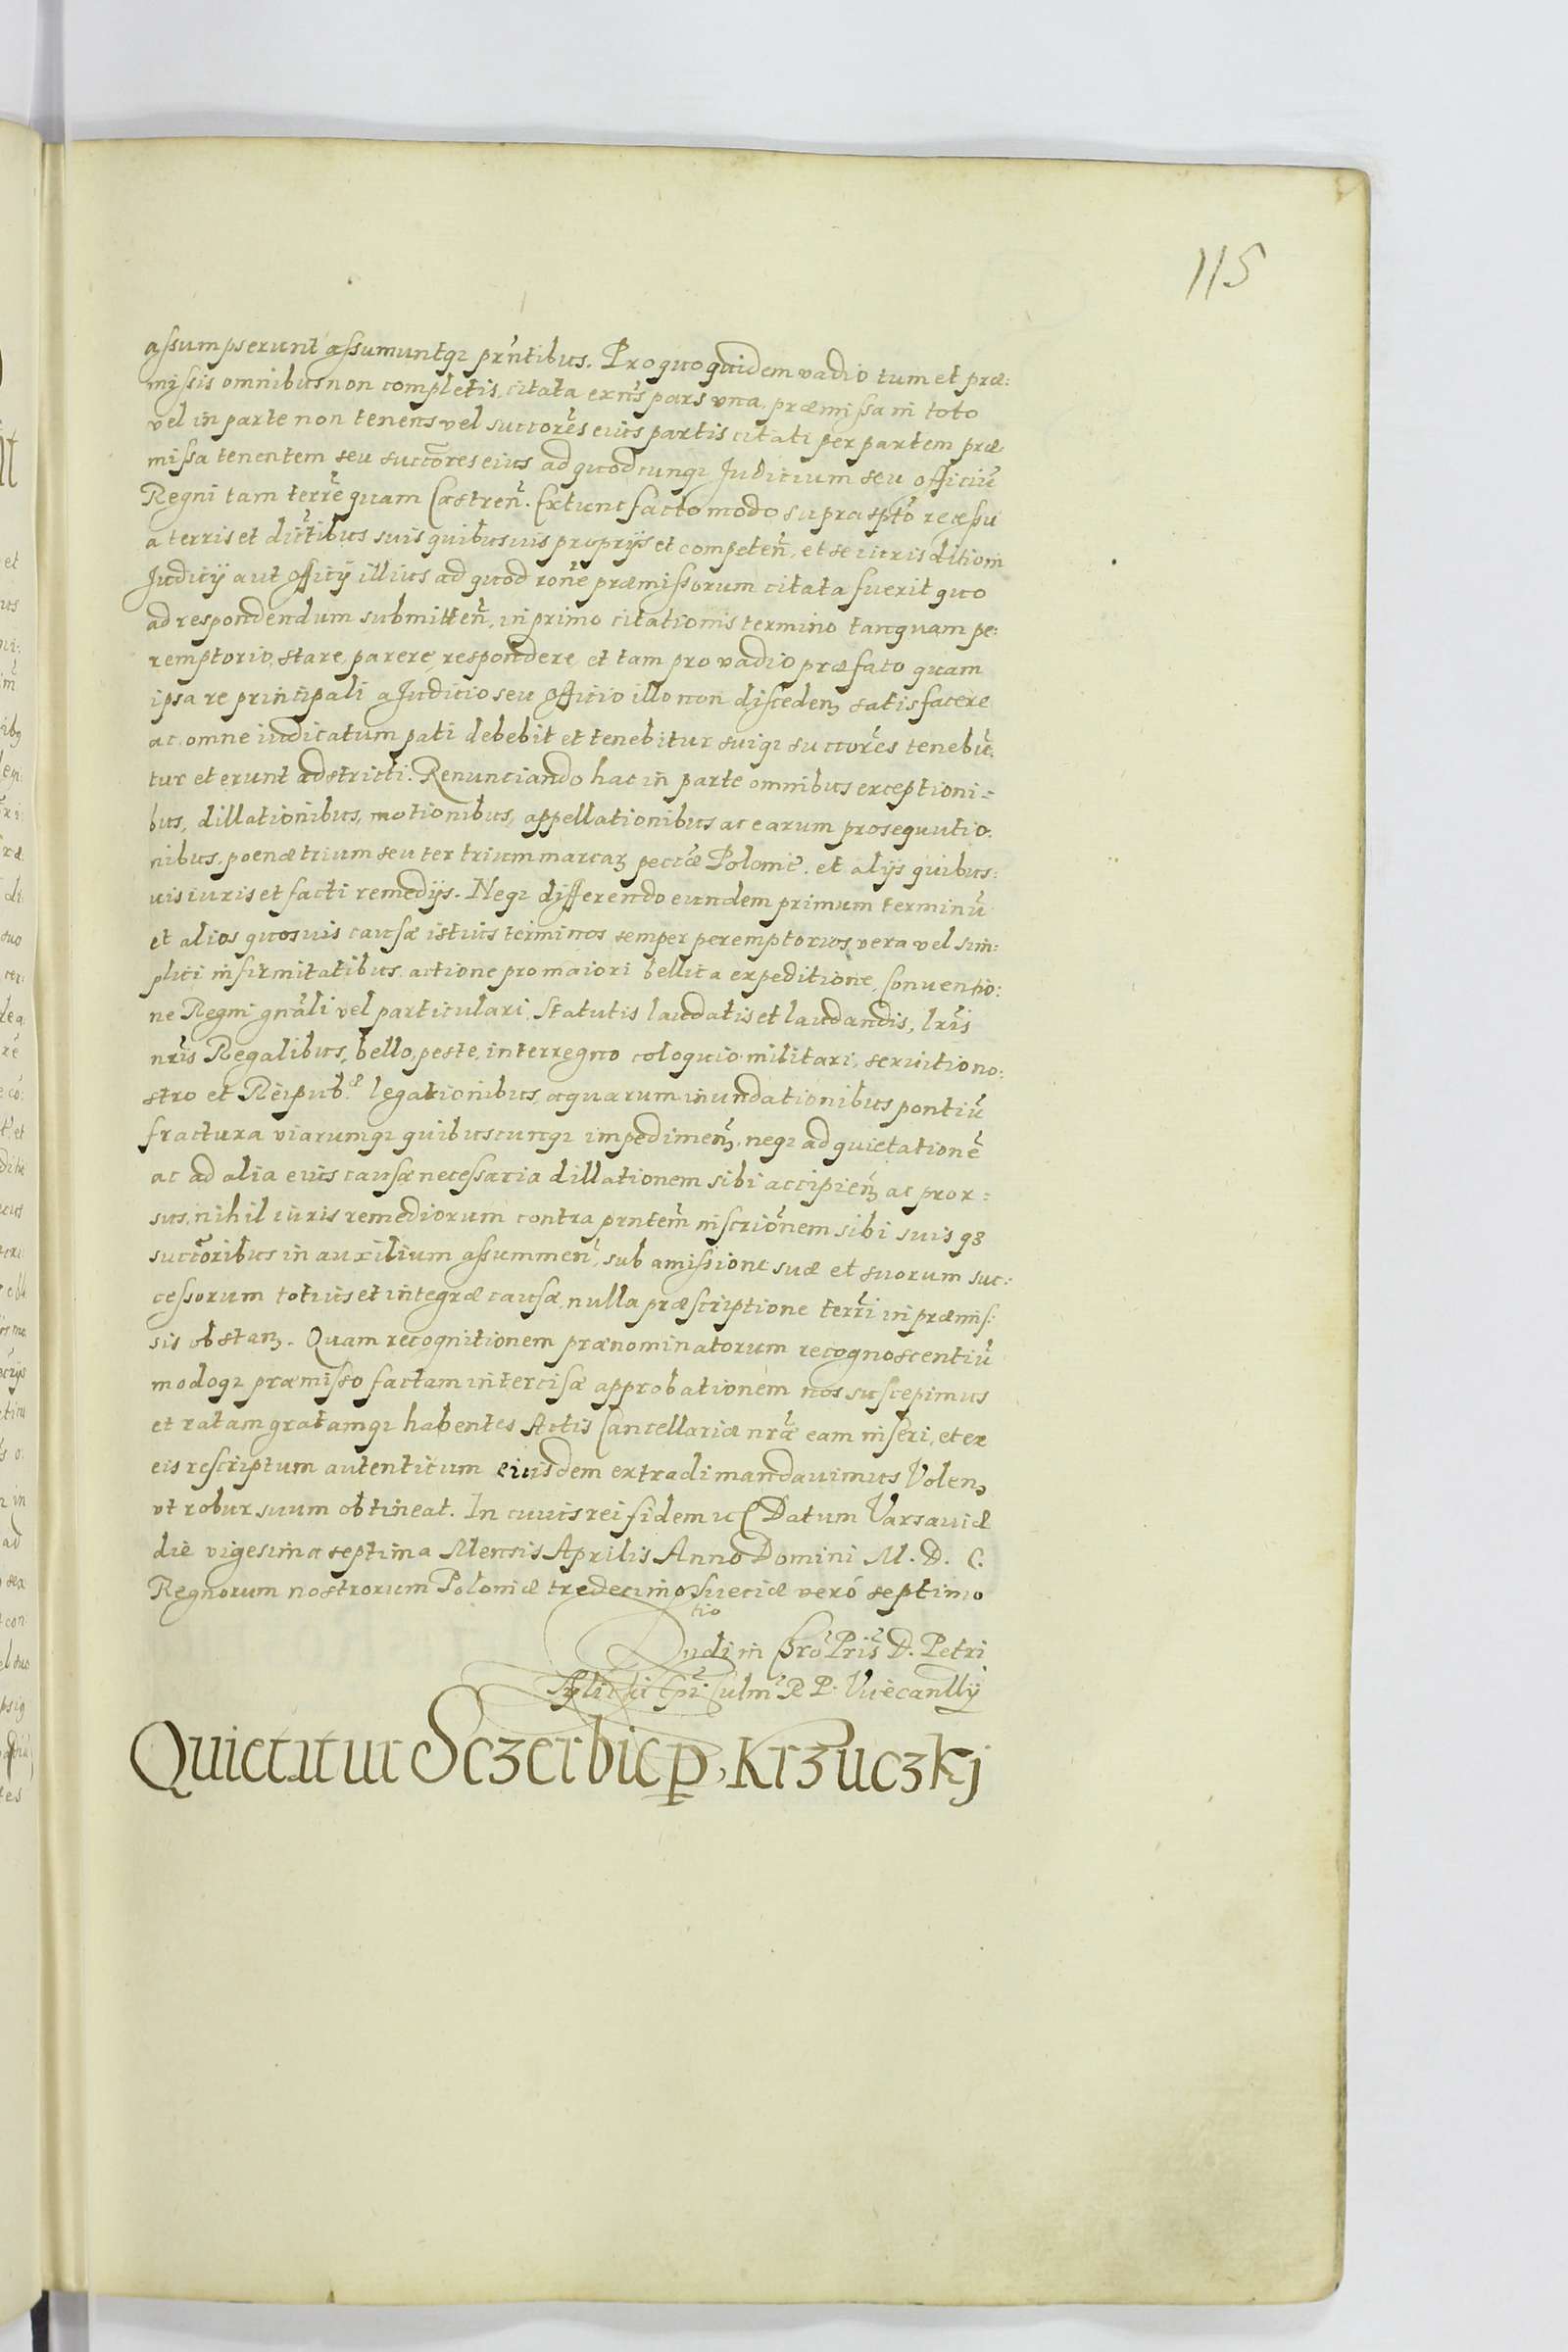 115
assumpserunt assumuntqȝ prn̄tibus. Pro quo quidem vadio tum et præ:
missis omnibus non completis, citata exn̄s pars vna, præmissa in toto
vel in parte non tenens vel succorēs eius partis citati per partem præ
missa tenentem seu succōres eius ad quodcunqȝ Judicium seu officiū
Regni tam terrē quam Castren̄. Extunc facto modo suprasptō recessu
a terris et dictībus suis quibusuis proprijs et competen̄, et se iurisdition
Judicij aut officij illius ad quod ronē præmissorum citata fuerit quo
ad respondendum submitten̄, in primo citationis termino tanquam pe:
remptorio, stare, parere, respondere, et tam pro vadio præfato quam
ipsa re principali a Judicio seu officio illo non discedenȝ satisfacere
ac omne iudicatum pati debebit et tenebitur suiqȝ succorēs tenebū.
tur et erunt adstricti. Renunciando hac in parte omnibus exceptioni=
bus, dillationibus, motionibus, appellationibus ac earum prosequutio:
nibus, poenæ trium seu ter trium marcaȝ peccǣ Polonic̄. et alijs quibus:
uis iuris et facti remedijs. Neqȝ differendo eundem primum terminū
et alios quosuis causæ istius terminos semper peremptorios vera vel sim:
plici infirmitatibus, actione pro maiori bellica expeditione, Conuentio:
ne Regni gnāli vel particulari, Statutis laudatis et laudandis, lrīs
nrīs Regalibus, bello, peste, interregno coloquio militari, seruitio no:
stro et Reipub.æ legationibus, aquarum inundationibus pontiū
fractura viarumqȝ quibuscunqȝ impedimenȝ, neqȝ ad quietationē
ac ad alia eius causæ necessaria dillationem sibi accipienȝ ac pror=
sus, nihil iuris remediorum contra prntem̄ inscriōnem sibi suis qȝ
succōribus in auxilium assummen̄, sub amissione suæ et suorum suc:
cessorum totius et integræ causæ, nulla præscriptione terrī in præmis:
sis obstanȝ. Quam recognitionem prænominatorum recognoscentiū
modoqȝ præmisso factam intercisæ approbationem nos suscepimus
et ratam gratamqȝ habentes Actis Cancellariæ nrǣ eam inseri, et ex
eis rescriptum autenticum eiusdem extradi mandauimus Volenȝ
vt robur suum obtineat. In cuius rei fidem Datum Varsauiæ
die vigesima septima Mensis Aprilis Anno Domini M. D. C.
Regnorum nostrorum Poloniæ tredecimo Sueciæ veró septimo
D. Petri
Tÿlicki Culm̄ R P. Vicecanllÿ
Quietatur Sczerbic p, Krzuczkj